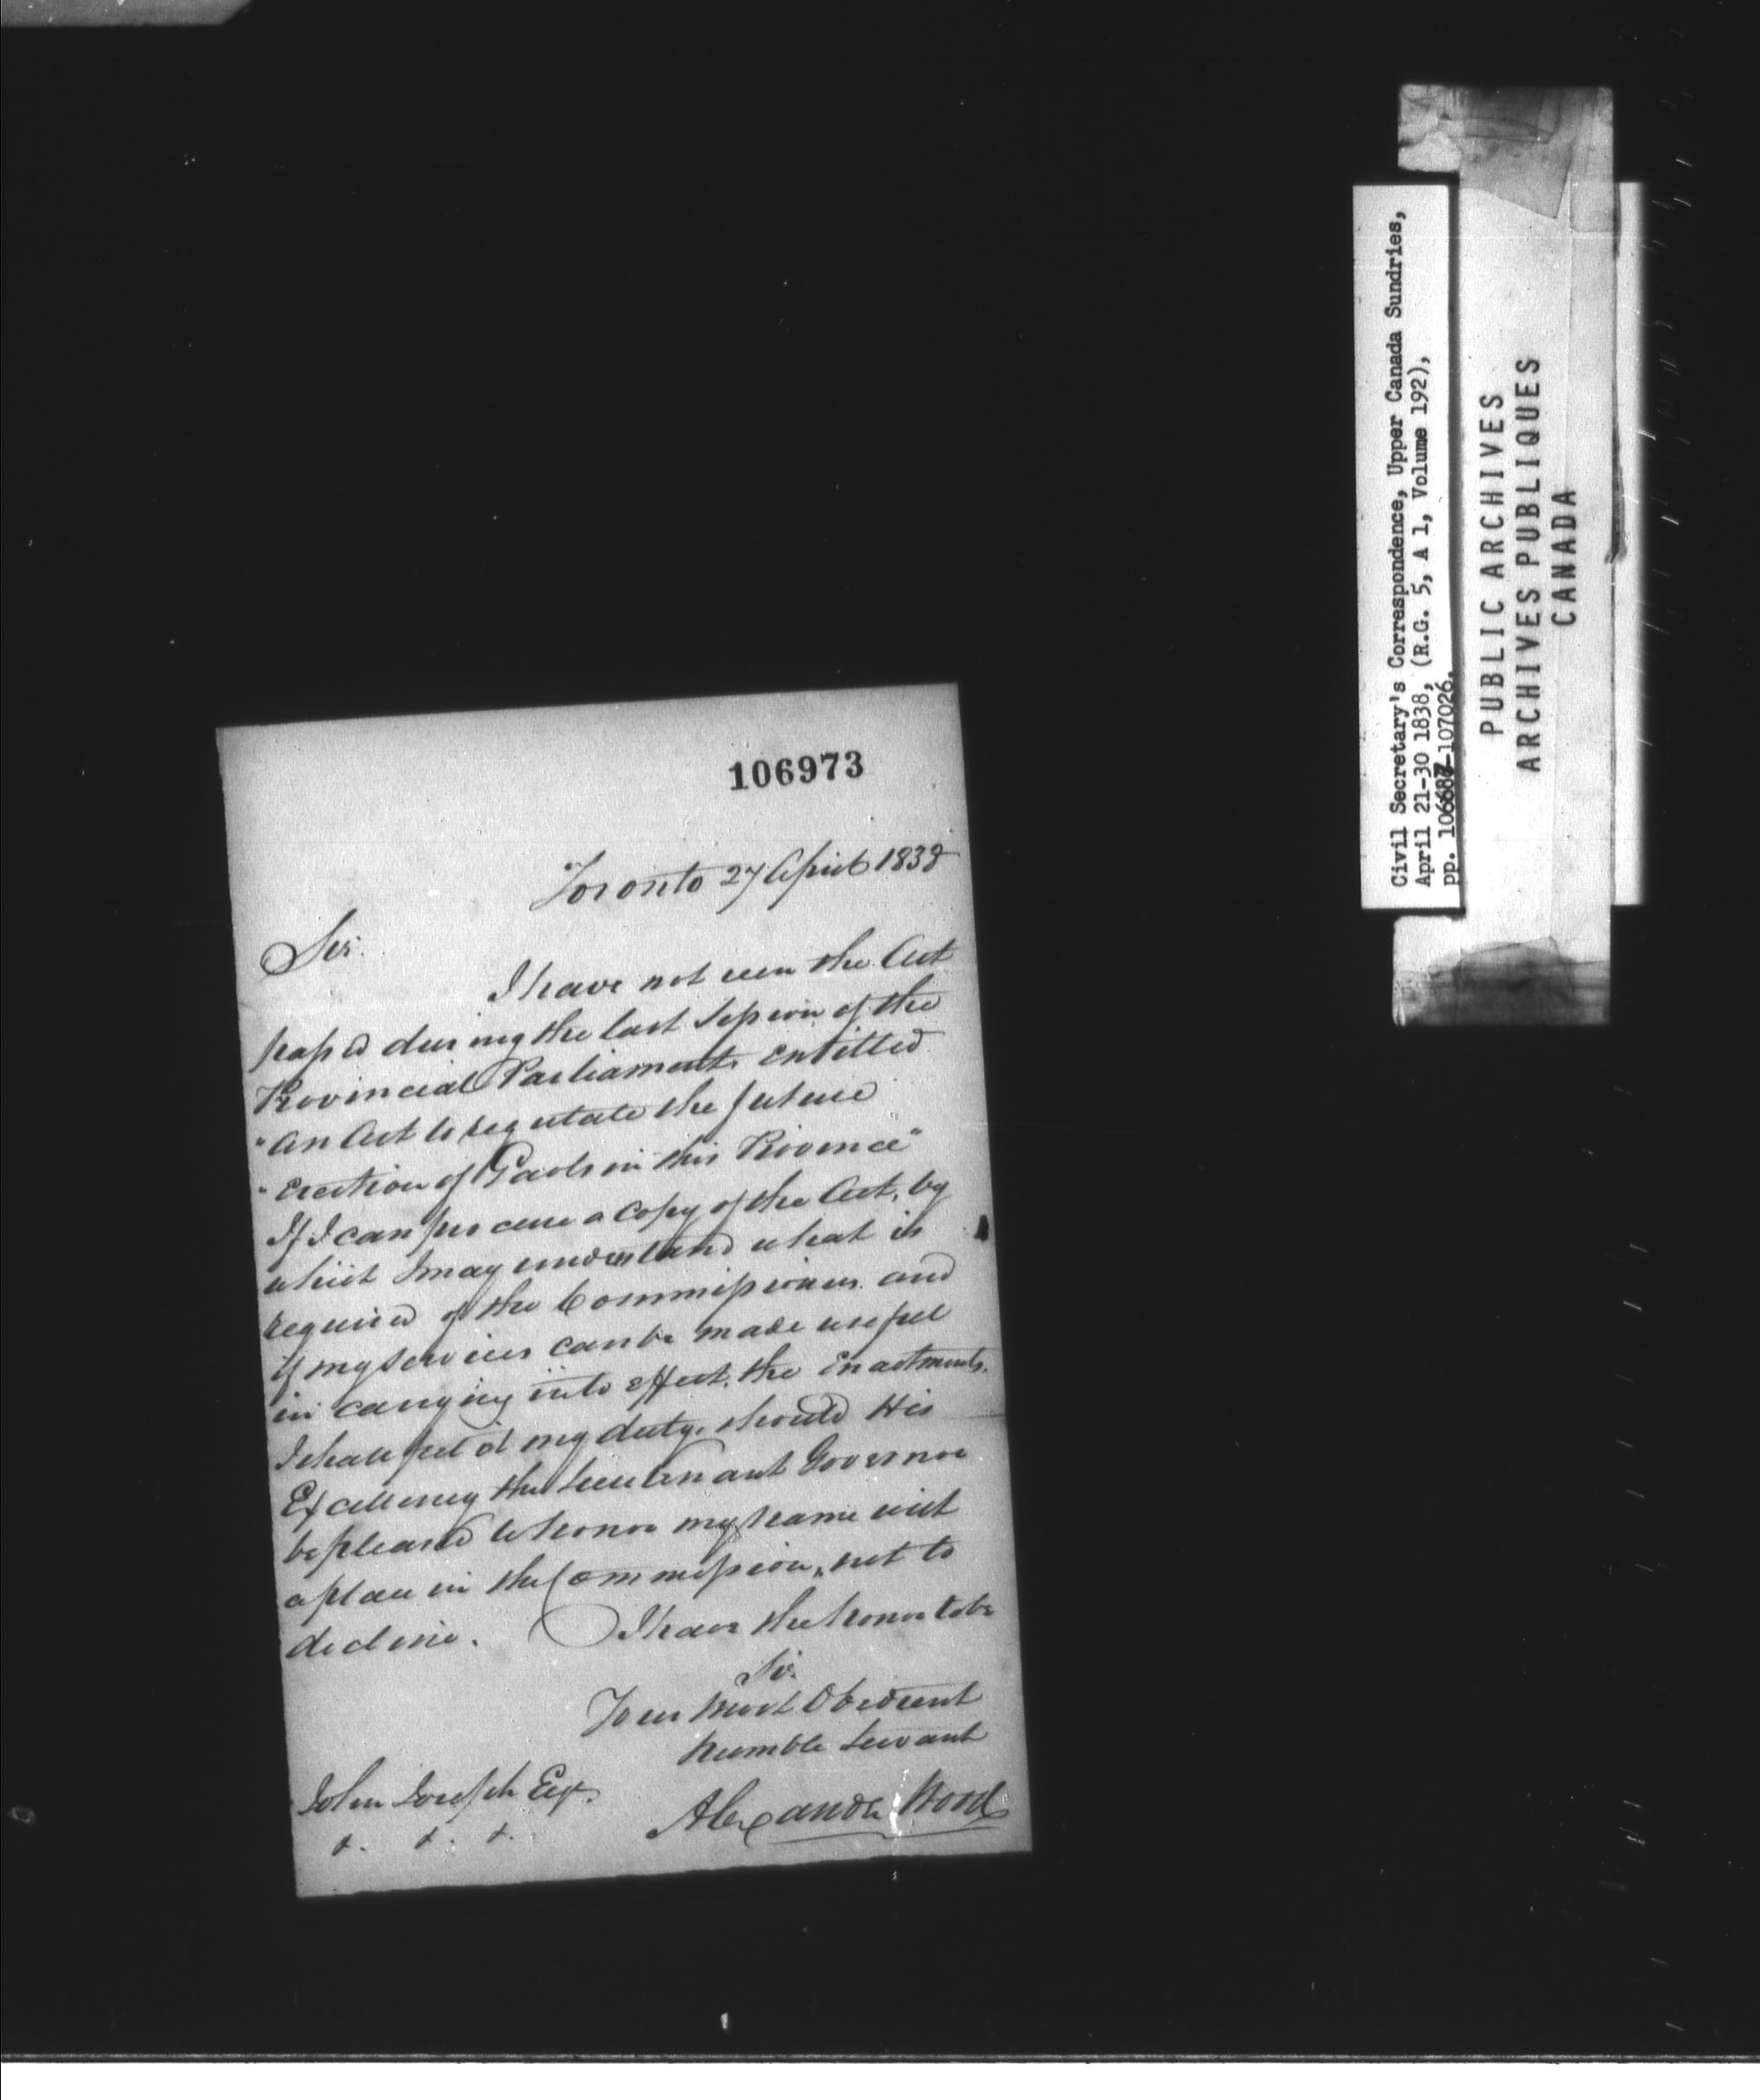 106973
Toronto 27 April 1838
Sir.
I have not seen the Act
passed during the last Session of the
Provincial Parliament, entitled
"An Act to regulate the future
"Erection of Gaols in this Province"
If I can procure a Copy of the Act, by
which I may understand what is
required of the Commissioners and
if my services can be made useful
in carrying into effect, the Enactments,
I shall feel it my duty, should His
Excellency the Lieutenant Governor
be pleased to honor my name with
a place in the Commission, not to
decline. I have the honor to be
Sir.
Your Most Obedient
humble Servant
Alexander Wood
John Joseph Esqr.
&. &. &.
Civil Secretary's Correspondence, Upper Canada Sundries,
April 21-30 1838, (R.G. 5, A 1, Volume 192),
pp. 106687-107026.
PUBLIC ARCHIVES
ARCHIVES PUBLIQUES
CANADA